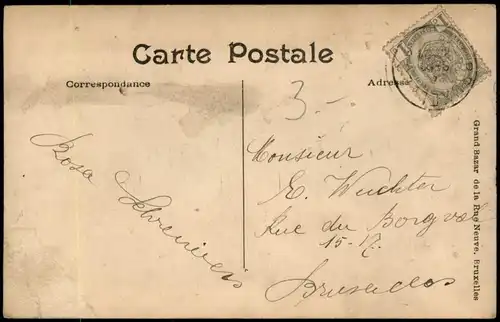 Carte Postale
Correspondance
Adresse
3.-
Rosa
Monsieur
E. Wuchter
Rue du Borgval
15-17.
Bruxelles
Grand Bazar de la Rue Neuve, Bruxelles